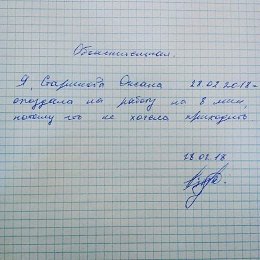 Объяснительная.
Я, Старикова Оксана 28.02.2018
опоздала на работу на 8 мин,
потому что не хотела приходить
28.02.18